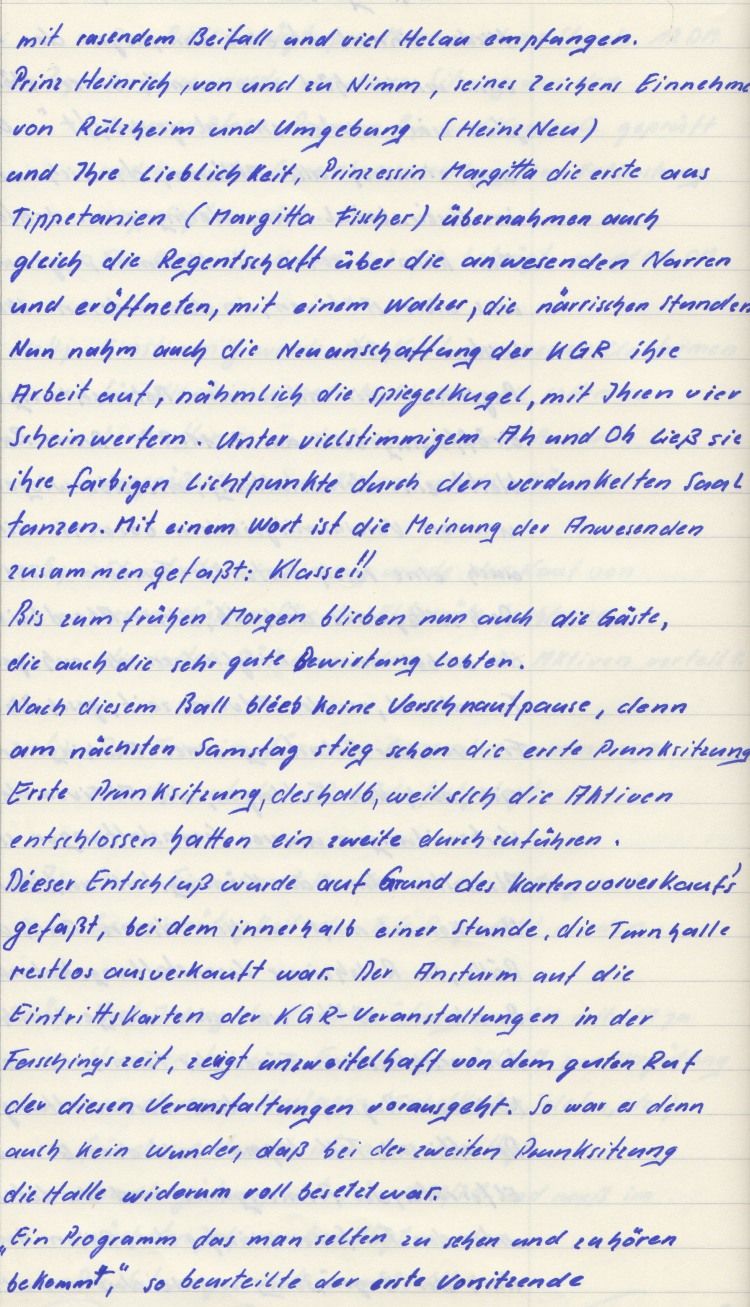 mit rasendem Beifall und viel Helau empfangen.
Prinz Heinrich, von und zu Nimm, seines Zeichens Einnehme
von Rülzheim und Umgebung (Heinz Neu)
und Ihre Lieblichkeit, Prinzessin Margitta die erste aus
Tippetanien (Margitta Fischer) übernahmen auch
gleich die Regentschaft über die anwesenden Narren
und eröffneten, mit einem Walzer, die närrischen Stunden
Nun nahm auch die Neuanschaffung der KGR ihre
Arbeit auf, nähmlich die Spiegelkugel, mit Ihren vier
Scheinwerfern. Unter vielstimmigem Ah und Oh ließ sie
ihre farbigen Lichtpunkte durch den verdunkelten Saal
tanzen. Mit einem Wort ist die Meinung der Anwesenden
zusammengefaßt: Klasse!!
Bis zum frühen Morgen blieben nun auch die Gäste,
die auch die sehr gute Bewirtung lobten.
Nach diesem Ball blieb keine Verschnaufpause, denn
am nächsten Samstag stieg schon die erste Prunksitzung
Erste Prunksitzung, deshalb, weil sich die Aktiven
entschlossen hatten ein zweite durchzuführen.
Dieser Entschluß wurde auf Grund des Kartenvorverkauf's
gefaßt, bei dem innerhalb einer Stunde, die Turnhalle
restlos ausverkauft war. Der Ansturm auf die
Eintrittskarten der KGR-Veranstaltungen in der
Faschingszeit, zeugt unzweifelhaft von dem guten Ruf
der diesen Veranstaltungen vorausgeht. So war es denn
auch kein Wunder, daß bei der zweiten Prunksitzung
die Halle widerum voll besetzt war.
„Ein Programm das man selten zu sehen und zu hören
bekommt," so beurteilte der erste Vorsitzende